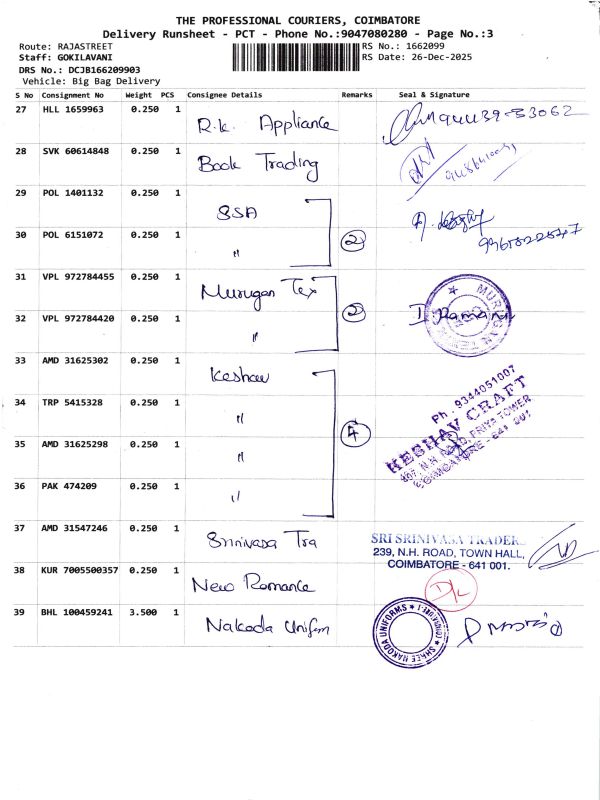 THE PROFESSIONAL COURIERS, COIMBATORE
Delivery Runsheet - PCT - Phone No.:9047080280 - Page No.:3
Route: RAJASTREET
RS No.: 1662099
Staff: GOKILAVANI
RS Date: 26-Dec-2025
DRS No.: DCJB166209903
Vehicle: Big Bag Delivery
S No Consignment No Weight PCS Consignee Details Remarks Seal & Signature
27 HLL 1659963 0.250 1 R.k. Appliance
28 SVK 60614848 0.250 1 Book Trading
29 POL 1401132 0.250 1 SSA
30 POL 6151072 0.250 1 " 2
31 VPL 972784455 0.250 1 Murugan Tex
32 VPL 972784420 0.250 1 " 2
MURUGAN
33 AMD 31625302 0.250 1 Keshav
34 TRP 5415328 0.250 1 "
35 AMD 31625298 0.250 1 "
36 PAK 474209 0.250 1 "
Ph : 9344051007
KESHAV CRAFT
COIMBATORE - 641 001
37 AMD 31547246 0.250 1 Srinivasa Tra
SRI SRINIVASA TRADER
239, N.H. ROAD, TOWN HALL,
COIMBATORE - 641 001.
38 KUR 7005500357 0.250 1 New Romance D/L
39 BHL 100459241 3.500 1 Nakoda Unifm
SHREE NAKODA UNIFORMS